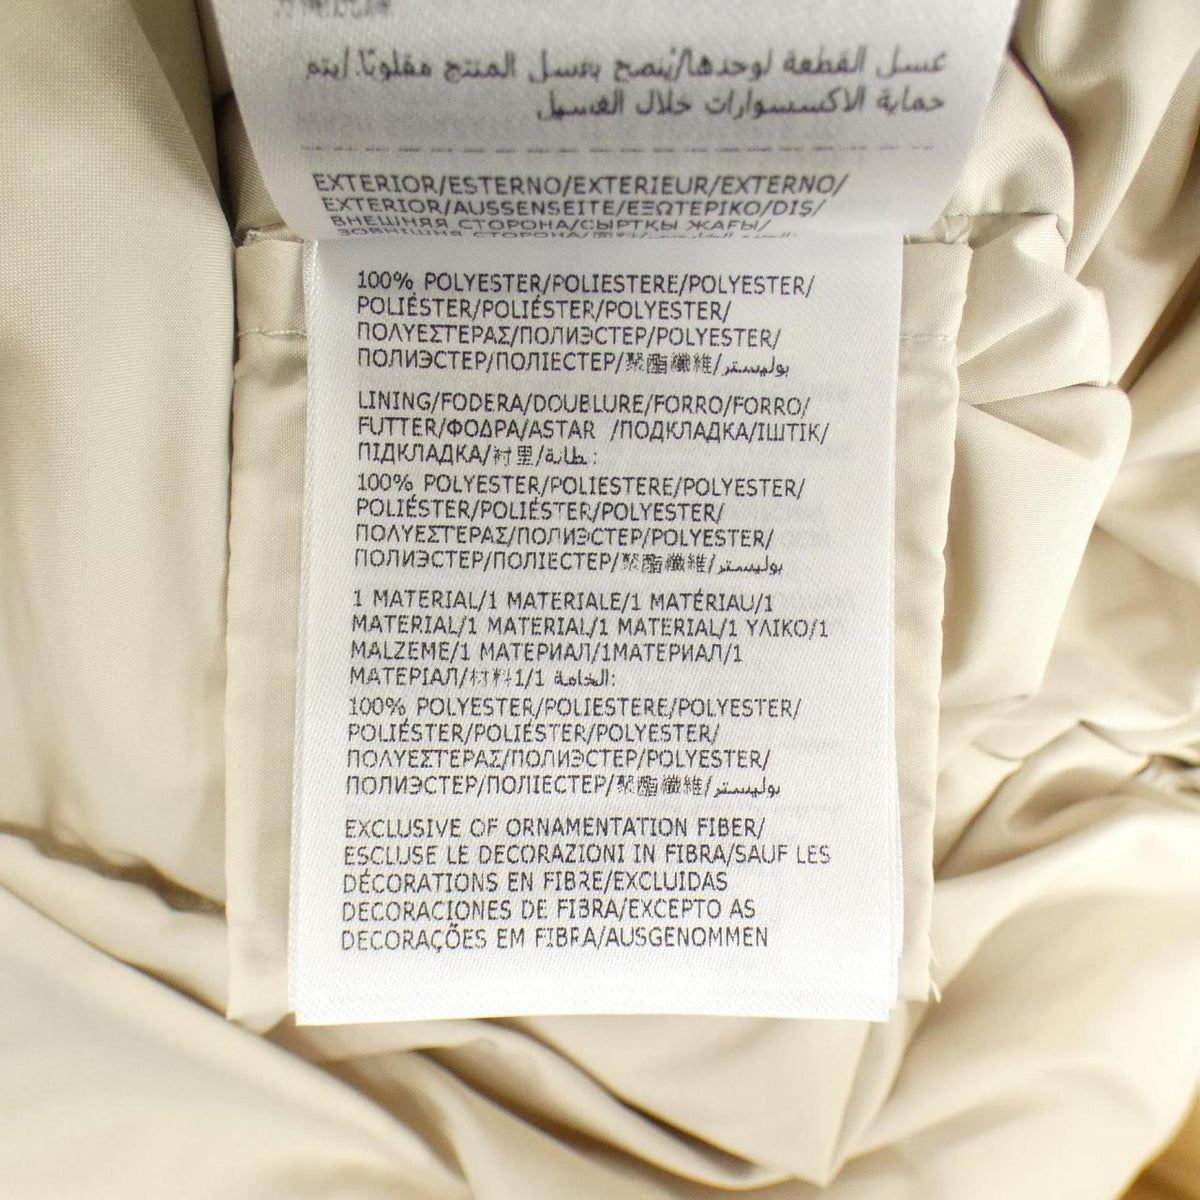 غسل القطعة لوحدها/يُنصح بغسل المنتج مقلوبًا./يتم
حماية الاكسسوارات خلال الغسيل
EXTERIOR/ESTERNO/EXTERIEUR/EXTERNO/
EXTERIOR/AUSSENSEITE/ΕΞΩΤΕΡΙΚΟ/DIŞ/
ВНЕШНЯЯ СТОРОНА/СЫРТҚЫ ЖАҒЫ/
ЗОВНІШНЯ СТОРОНА/
100% POLYESTER/POLIESTERE/POLYESTER/
POLIÉSTER/POLIÉSTER/POLYESTER/
ΠΟΛΥΕΣΤΕΡΑΣ/ПОЛИЭСТЕР/POLYESTER/
ПОЛИЭСТЕР/ПОЛІЕСТЕР/聚酯纖維/بوليستر
LINING/FODERA/DOUBLURE/FORRO/FORRO/
FUTTER/ΦΟΔΡΑ/ASTAR /ПОДКЛАДКА/ІШТІК/
ПІДКЛАДКА/衬里/بطانة:
100% POLYESTER/POLIESTERE/POLYESTER/
POLIÉSTER/POLIÉSTER/POLYESTER/
ΠΟΛΥΕΣΤΕΡΑΣ/ПОЛИЭСТЕР/POLYESTER/
ПОЛИЭСТЕР/ПОЛІЕСТЕР/聚酯纖維/بوليستر
1 MATERIAL/1 MATERIALE/1 MATÉRIAU/1
MATERIAL/1 MATERIAL/1 MATERIAL/1 ΥΛΙΚΟ/1
MALZEME/1 МАТЕРИАЛ/1МАТЕРИАЛ/1
МАТЕРІАЛ/材料1/1 الخامة:
100% POLYESTER/POLIESTERE/POLYESTER/
POLIÉSTER/POLIÉSTER/POLYESTER/
ΠΟΛΥΕΣΤΕΡΑΣ/ПОЛИЭСТЕР/POLYESTER/
ПОЛИЭСТЕР/ПОЛІЕСТЕР/聚酯纖維/بوليستر
EXCLUSIVE OF ORNAMENTATION FIBER/
ESCLUSE LE DECORAZIONI IN FIBRA/SAUF LES
DÉCORATIONS EN FIBRE/EXCLUIDAS
DECORACIONES DE FIBRA/EXCEPTO AS
DECORAÇÕES EM FIBRA/AUSGENOMMEN